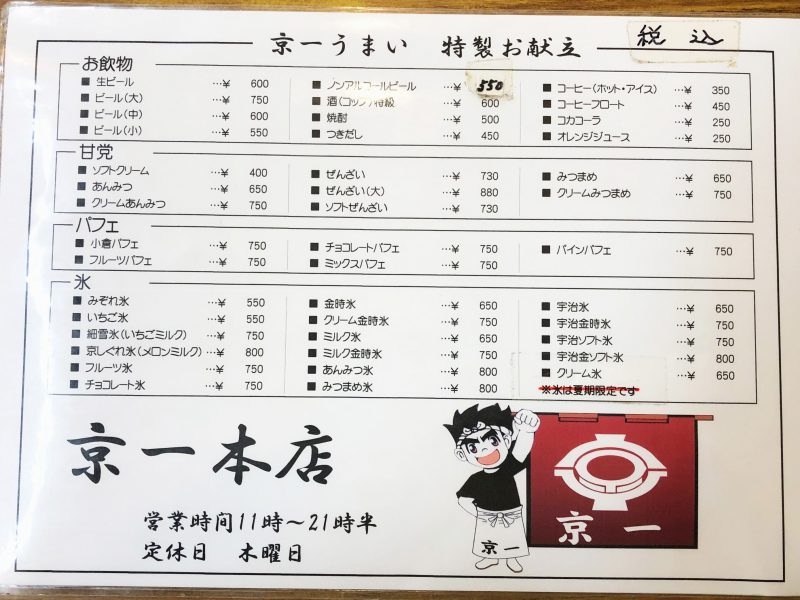 京一うまい 特製お献立
税込
お飲物
■ 生ビール …¥ 600
■ ビール(大) …¥ 750
■ ビール(中) …¥ 600
■ ビール(小) …¥ 550
■ ノンアルコールビール …¥ 550
■ 酒(コップ)特級 …¥ 600
■ 焼酎 …¥ 500
■ つきだし …¥ 450
■ コーヒー(ホット・アイス) …¥ 350
■ コーヒーフロート …¥ 450
■ コカコーラ …¥ 250
■ オレンジジュース …¥ 250
甘党
■ ソフトクリーム …¥ 400
■ あんみつ …¥ 650
■ クリームあんみつ …¥ 750
■ ぜんざい …¥ 730
■ ぜんざい(大) …¥ 880
■ ソフトぜんざい …¥ 730
■ みつまめ …¥ 650
■ クリームみつまめ …¥ 750
パフェ
■ 小倉パフェ …¥ 750
■ フルーツパフェ …¥ 750
■ チョコレートパフェ …¥ 750
■ ミックスパフェ …¥ 750
■ パインパフェ …¥ 750
氷
■ みぞれ氷 …¥ 550
■ いちご氷 …¥ 550
■ 細雪氷(いちごミルク) …¥ 750
■ 京しぐれ氷(メロンミルク) …¥ 800
■ フルーツ氷 …¥ 750
■ チョコレート氷 …¥ 750
■ 金時氷 …¥ 650
■ クリーム金時氷 …¥ 750
■ ミルク氷 …¥ 650
■ ミルク金時氷 …¥ 750
■ あんみつ氷 …¥ 800
■ みつまめ氷 …¥ 800
■ 宇治氷 …¥ 650
■ 宇治金時氷 …¥ 750
■ 宇治ソフト氷 …¥ 750
■ 宇治金ソフト氷 …¥ 800
■ クリーム氷 …¥ 650
※氷は夏期限定です
京一本店
営業時間11時～21時半
定休日 木曜日
京一
京一